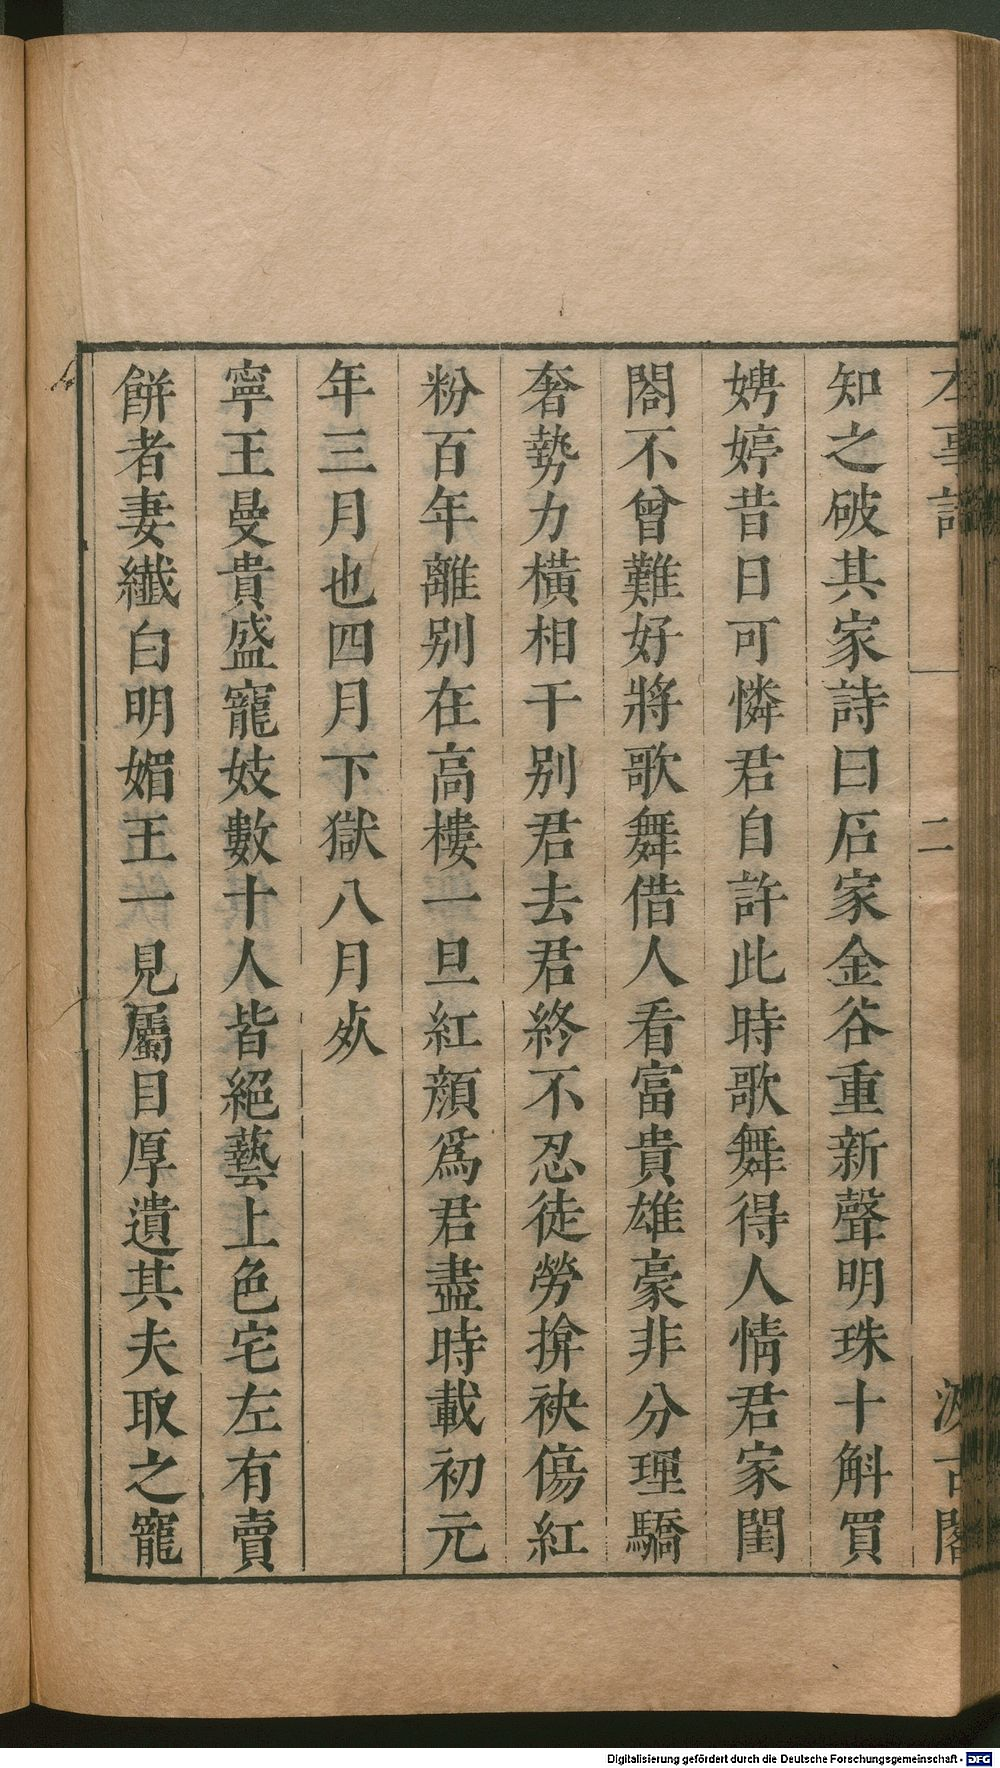 本事詩 二 汲古閣
知之破其家詩曰石家金谷重新聲明珠十斛買
娉婷昔日可憐君自許此時歌舞得人情君家閨
閤不曾難好將歌舞借人看富貴雄豪非分理驕
奢勢力橫相干别君去君終不忍徒勞揜袂傷紅
粉百年離别在高樓一旦紅顔爲君盡時載初元
年三月也四月下獄八月死
寧王曼貴盛寵妓數十人皆絕藝上色宅左有賣
餅者妻纖白明媚王一見屬目厚遺其夫取之寵
Digitalisierung gefördert durch die Deutsche Forschungsgemeinschaft - DFG